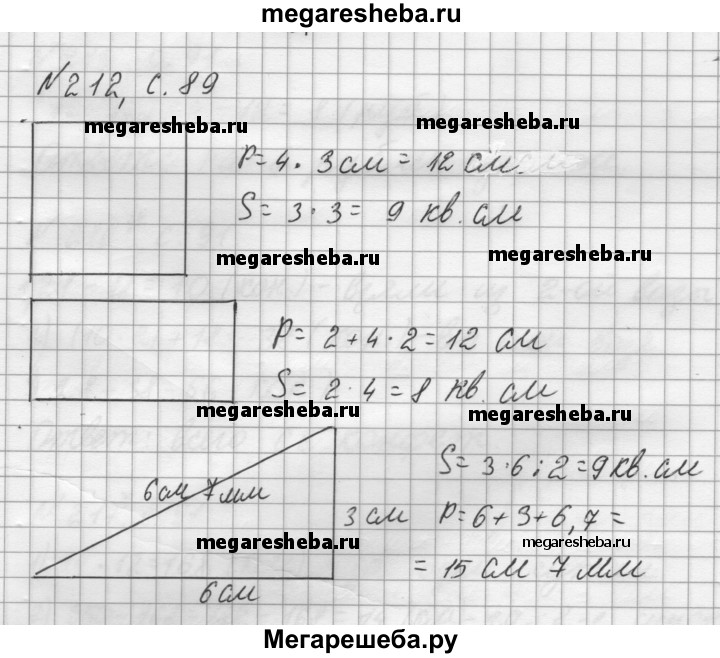 megaresheba.ru
№212, с. 89
megaresheba.ru
megaresheba.ru
P = 4 · 3 см = 12 см.
S = 3 · 3 = 9 кв. см
megaresheba.ru
megaresheba.ru
P = 2 + 4 · 2 = 12 см
S = 2 · 4 = 8 кв. см
megaresheba.ru
megaresheba.ru
S = 3 · 6 : 2 = 9 кв. см
6 см 7 мм
3 см
P = 6 + 3 + 6,7 =
megaresheba.ru
megaresheba.ru
= 15 см 7 мм
6 см
Мегарешеба.ру